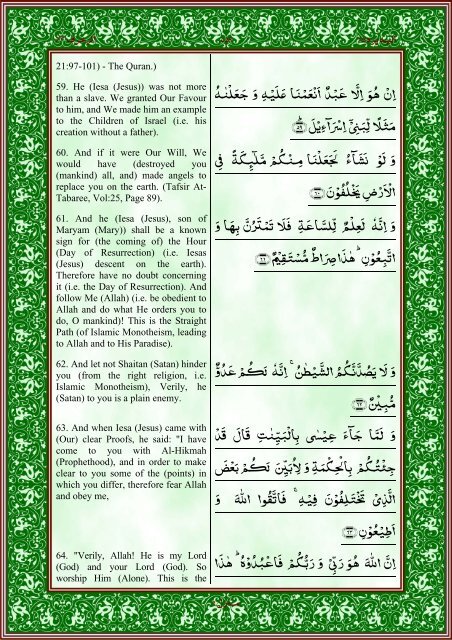 21:97-101) - The Quran.)
59. He (Iesa (Jesus)) was not more
than a slave. We granted Our Favour
to him, and We made him an example
to the Children of Israel (i.e. his
creation without a father).
60. And if it were Our Will, We
would have (destroyed you
(mankind) all, and) made angels to
replace you on the earth. (Tafsir At-
Tabaree, Vol:25, Page 89).
61. And he (Iesa (Jesus), son of
Maryam (Mary)) shall be a known
sign for (the coming of) the Hour
(Day of Resurrection) (i.e. Iesas
(Jesus) descent on the earth).
Therefore have no doubt concerning
it (i.e. the Day of Resurrection). And
follow Me (Allah) (i.e. be obedient to
Allah and do what He orders you to
do, O mankind)! This is the Straight
Path (of Islamic Monotheism, leading
to Allah and to His Paradise).
62. And let not Shaitan (Satan) hinder
you (from the right religion, i.e.
Islamic Monotheism), Verily, he
(Satan) to you is a plain enemy.
63. And when Iesa (Jesus) came with
(Our) clear Proofs, he said: "I have
come to you with Al-Hikmah
(Prophethood), and in order to make
clear to you some of the (points) in
which you differ, therefore fear Allah
and obey me,
64. "Verily, Allah! He is my Lord
(God) and your Lord (God). So
worship Him (Alone). This is the
اِنْ هُوَ اِلَّا عَبْدٌ اَنْعَمْنَا عَلَيْهِ وَ جَعَلْنٰهُ
مَثَلًا لِّبَنِيْٓ اِسْرَآءِيْلَ ﴿۵۹﴾
وَ لَوْ نَشَآءُ لَجَعَلْنَا مِنْكُمْ مَّلٰٓئِكَةً فِي
الْاَرْضِ يَخْلُفُوْنَ ﴿۶۰﴾
وَ اِنَّهٗ لَعِلْمٌ لِّلسَّاعَةِ فَلَا تَمْتَرُنَّ بِهَا وَ
اتَّبِعُوْنِ ؕ هٰذَا صِرَاطٌ مُّسْتَقِيْمٌ ﴿۶۱﴾
وَ لَا يَصُدَّنَّكُمُ الشَّيْطٰنُ ۚ اِنَّهٗ لَكُمْ عَدُوٌّ
مُّبِيْنٌ ﴿۶۲﴾
وَ لَمَّا جَآءَ عِيْسٰى بِالْبَيِّنٰتِ قَالَ قَدْ
جِئْتُكُمْ بِالْحِكْمَةِ وَ لِاُبَيِّنَ لَكُمْ بَعْضَ
الَّذِيْ تَخْتَلِفُوْنَ فِيْهِ ۚ فَاتَّقُوا اللّٰهَ وَ
اَطِيْعُوْنِ ﴿۶۳﴾
اِنَّ اللّٰهَ هُوَ رَبِّيْ وَ رَبُّكُمْ فَاعْبُدُوْهُ ؕ هٰذَا